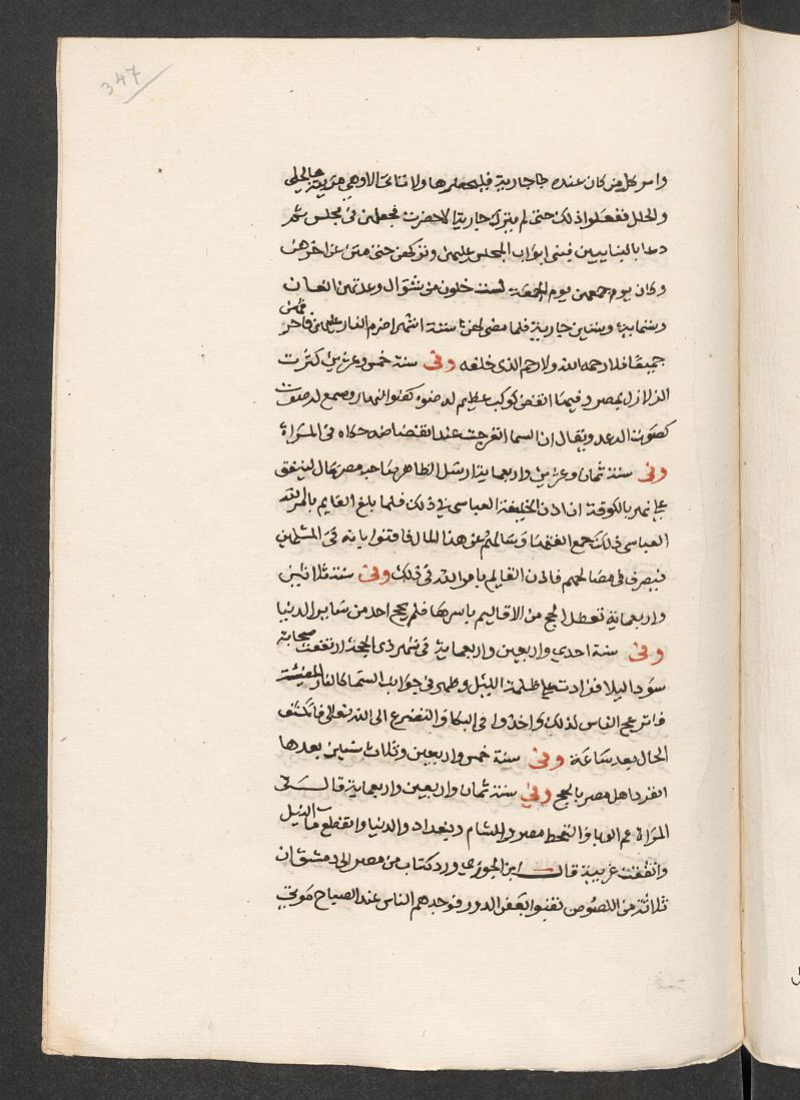 347
وامر كل من كان عنده جاجارية فليحضرها ولا تاتى الا وهي مزينة بالحلى
والحلل ففعلوا ذلك حتى لم يترك جارية الا حضرت فجعلهن في مجلس ثم
دعا بالبنايين فبنى ابواب المجلس عليهن وتركهن حتى متن عن اخرهن
وكان يوم جمعهن يوم الجمعة لست خلون من شوال وعدتهن الفان
وستماية وستين جارية فلما مضى لهن ستة اشهر اضرم النار عليهن فاحرقهن
جميعا فلا رحمه الله ولا رحم الذى خلفه وفى سنة خمس وعشرين كثرت
الزلازل بمصر وفيها انقض كوكب عظيم له ضوء كضوء النهار وسمع له صوت
كصوت الرعد ويقال ان السما انفرجت عند انقضاضه حكاه في المراة
وفى سنة ثمان وعشرين واربعماية ارسل الظاهر صاحب مصر بمال لينفق
على نهر بالكوفة ان اذن الخليفة العباسى في ذلك فلما بلغ القايم بامر الله
العباسى ذلك جمع الفقها وسالهم عن هذا المال فافتوا بانه فئ المسلمين
فيصرف في مصالحهم فاذن القايم بامر الله في ذلك وفى سنة ثلاثين
واربعماية تعطل الحج من الاقاليم باسرها فلم يحج احد من ساير الدنيا
وفى سنة احدى واربعين واربعماية في شهر ذى الحجة ارتفعت سحابة
سودا ليلا فزادت على ظلمة الليل وظهر في جوانب السما كالنار المضيئة
فانزعج الناس لذلك واخذوا في البكا والتضرع الى الله تعالى فانكشف
الحال بعد ساعة وفى سنة خمس واربعين وثلاث سنين بعدها
انفرد اهل مصر بالحج وفى سنة ثمان واربعين واربعماية قال في
المراة عم الوبا والقحط مصر والشام وبغداد والدنيا وانقطع ما النيل
واتفقت غريبة قال ابن الجوزي ورد كتاب من مصر الى دمشق ان
ثلاثة من اللصوص نقبوا بعض الدور فوجدهم الناس عند الصباح موتى